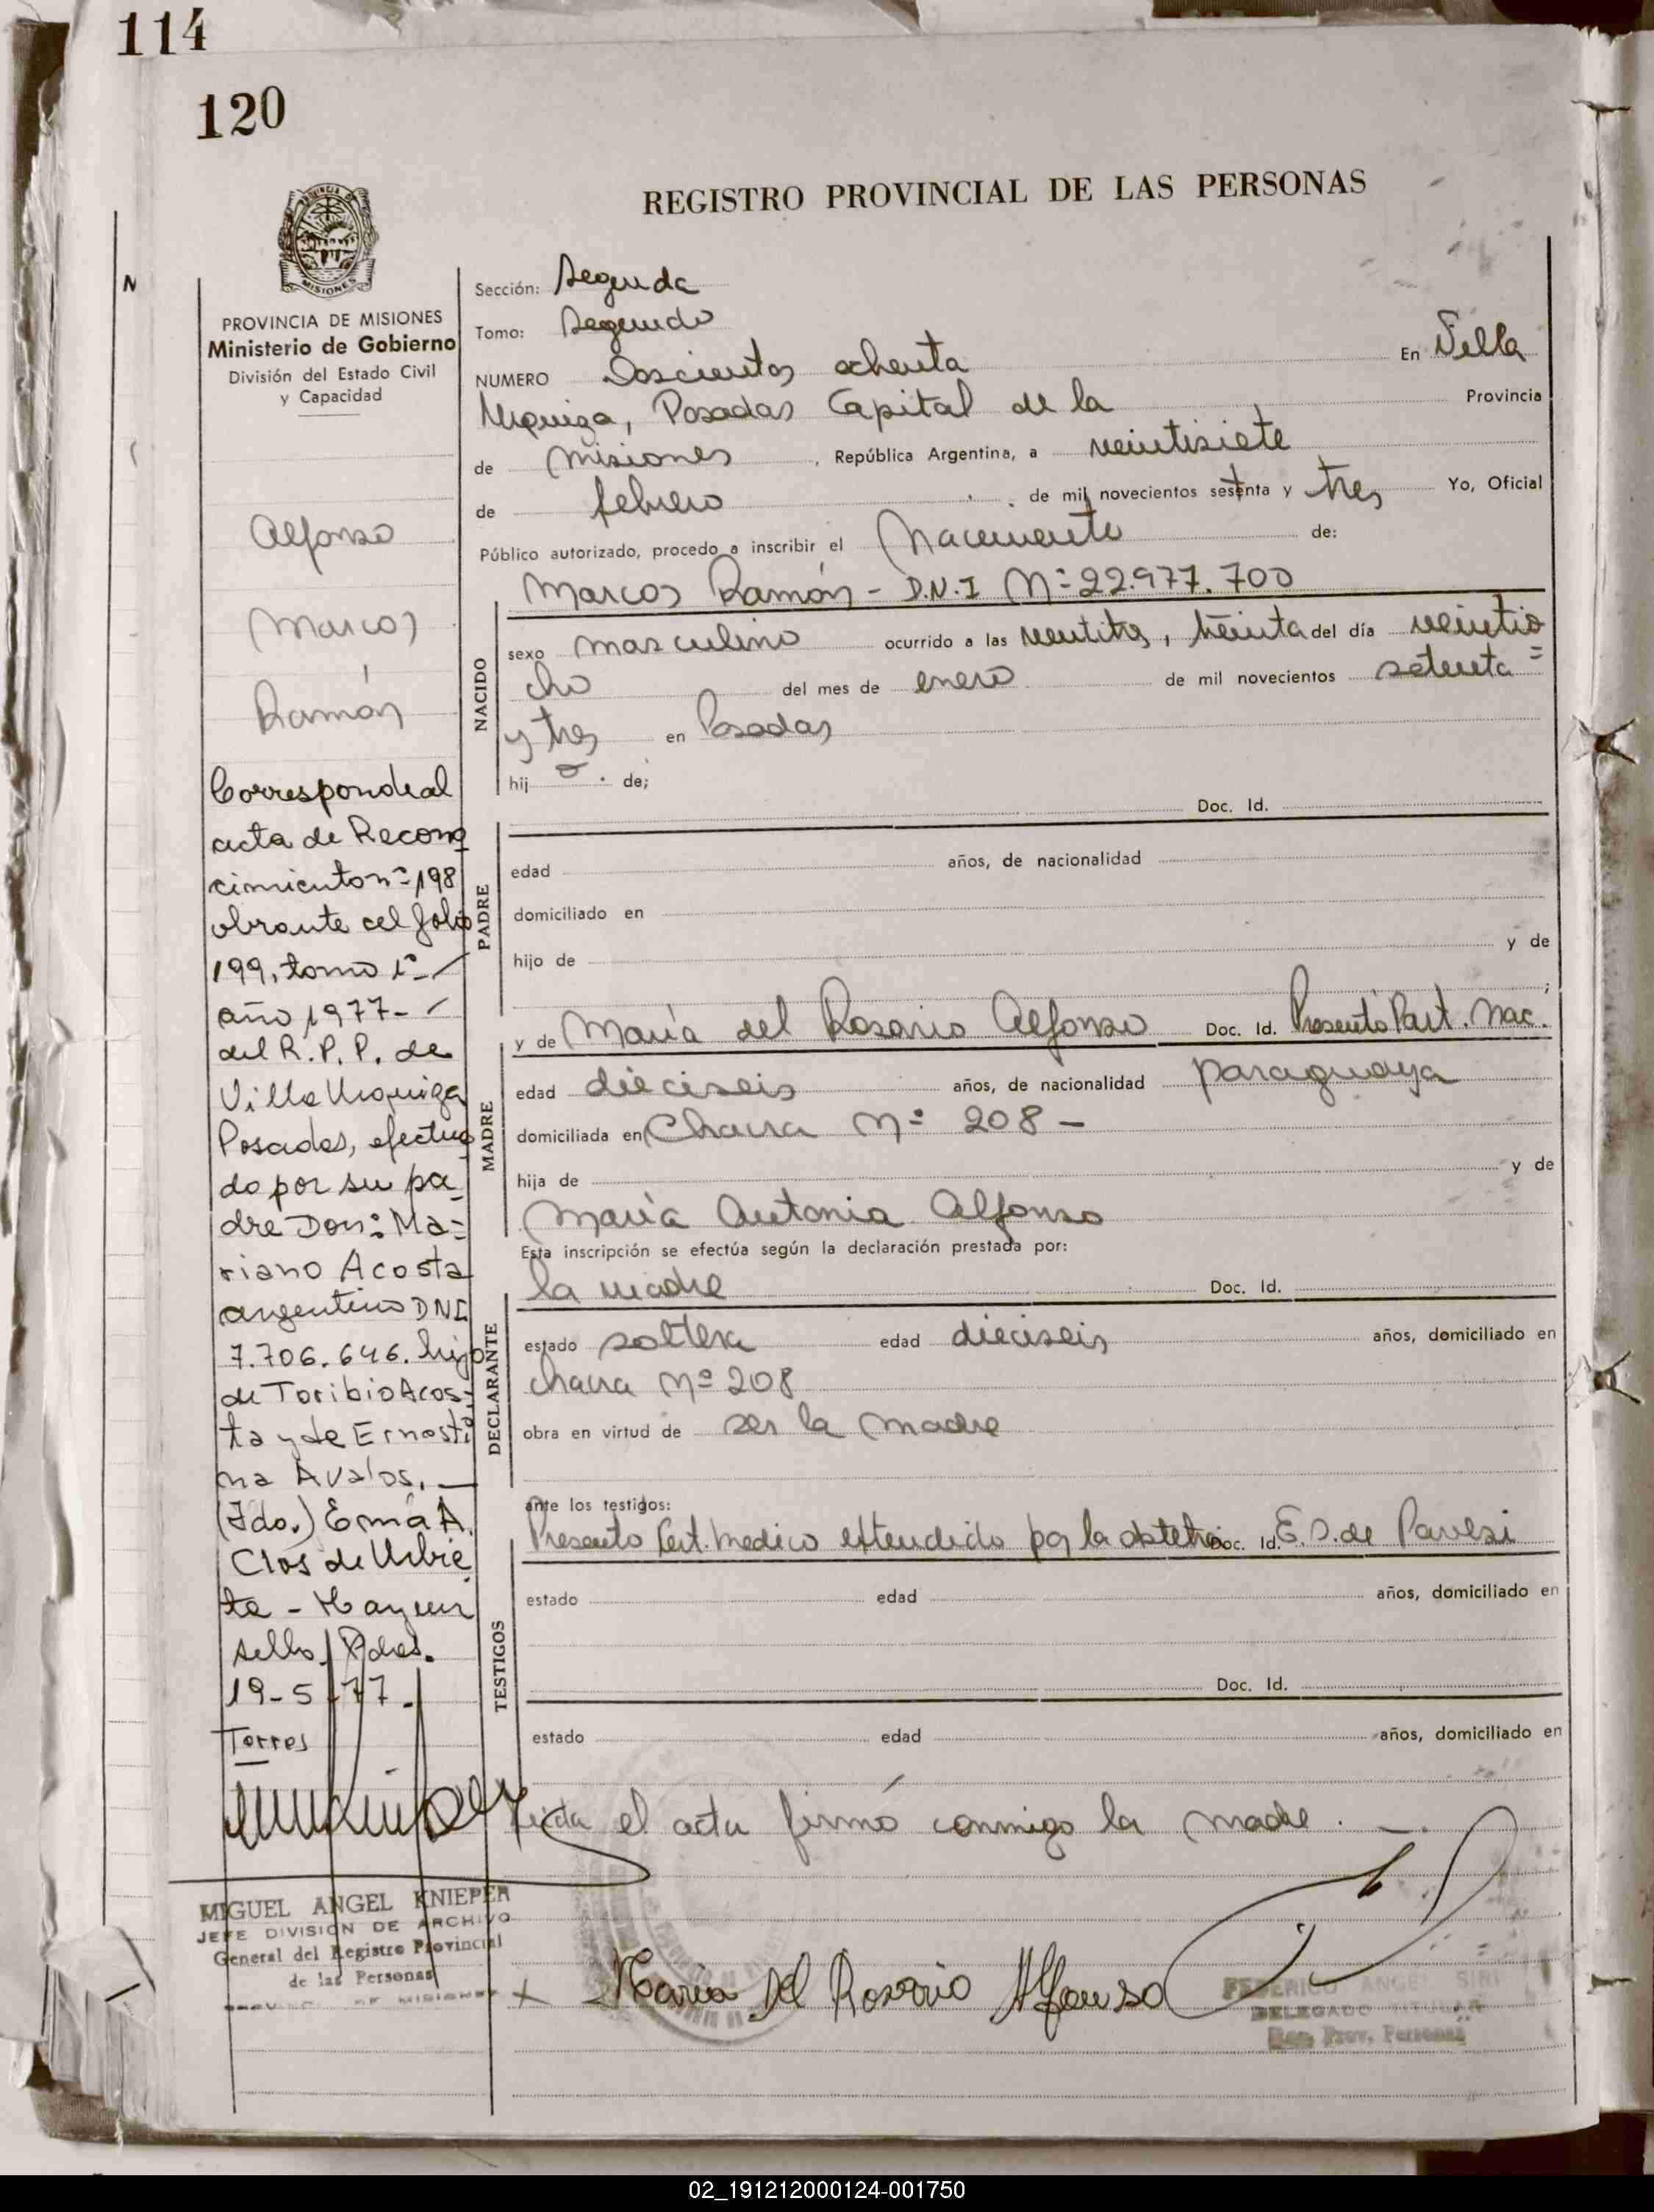 114
120
REGISTRO PROVINCIAL DE LAS PERSONAS
PROVINCIA DE MISIONES
MISIONES
PROVINCIA DE MISIONES
Ministerio de Gobierno
División del Estado Civil
y Capacidad
Alfonso
Marcos
Ramón
Corresponde al
acta de Recono
cimiento nº 198
obrante al folio
199, tomo 1º
año 1977-
del R.P.P. de
Villa Urquiza
Posadas, efectua
do por su pa
dre Don: Ma=
riano Acosta
argentino DNI
7.706.646. hijo
de Toribio Acos-
ta y de Ernesti
na Avalos.
(Fdo.) Ema A.
Clos de Urbie
ta - Hay un
sello. Pdas.
19-5-77.
Torres
MIGUEL ANGEL KNIEPER
JEFE DIVISION DE ARCHIVO
General del Registro Provincial
de las Personas
Sección: Segunda
Tomo: Segundo
NUMERO Doscientos ochenta En Villa
Urquiza, Posadas Capital de la Provincia
de Misiones, República Argentina, a veintisiete
de febrero de mil novecientos setenta y tres Yo, Oficial
Público autorizado, procedo a inscribir el Nacimiento de:
Marcos Ramón - D.N.I Nº 22.977.700
NACIDO
sexo masculino ocurrido a las veintitres, treinta del día veintio
cho del mes de enero de mil novecientos setenta =
y tres en Posadas
hij o. de;
Doc. Id.
PADRE
edad años, de nacionalidad
domiciliado en
hijo de y de
;
MADRE
y de María del Rosario Alfonso Doc. Id. Presentó Part. Nac.
edad dieciseis años, de nacionalidad paraguaya
domiciliada en Chacra Nº 208 -
hija de y de
María Antonia Alfonso
Esta inscripción se efectúa según la declaración prestada por:
DECLARANTE
la madre Doc. Id.
estado soltera edad dieciseis años, domiciliado en
chacra Nº 208
obra en virtud de ser la madre
ante los testigos:
TESTIGOS
Presento Cert. medico extendido por la obstetra Doc. Id. E. S. de Pavesi
estado edad años, domiciliado en
Doc. Id.
estado edad años, domiciliado en
Leida el acta firmó conmigo la madre.
x Maria Del Rosario Alfonso
FEDERICO ANGEL SIRI
DELEGADO TITULAR
Reg. Prov. Personas
02_191212000124-001750